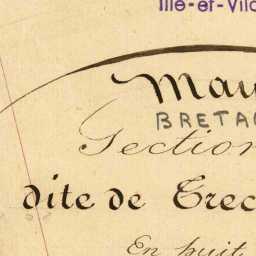 Ille-et-Vila
Mau
BRETA
Section
dite de Trec
En huit